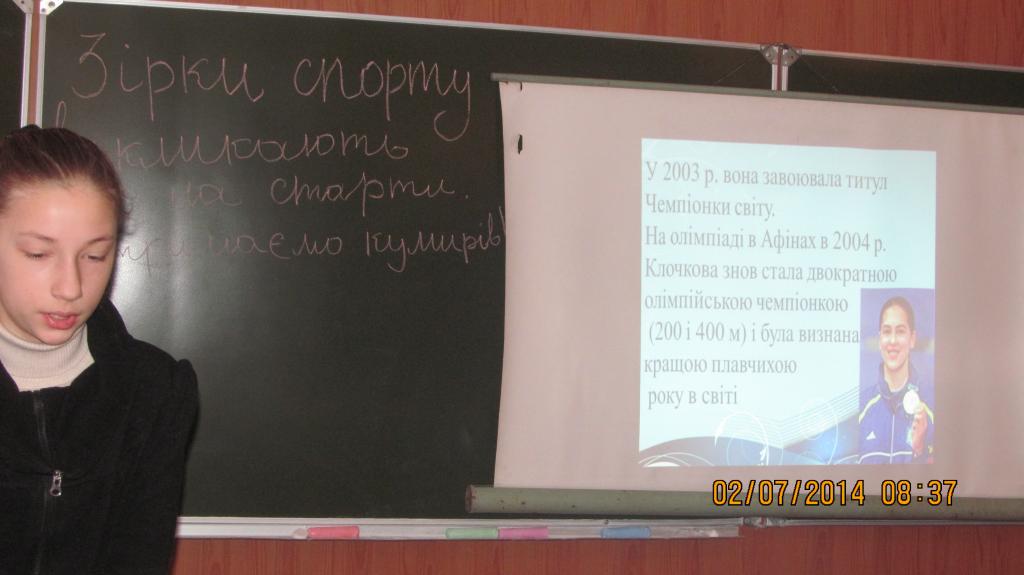 Зірки спорту
на старти.
кумирів!
У 2003 р. вона завоювала титул
Чемпіонки світу.
На олімпіаді в Афінах в 2004 р.
Клочкова знов стала двократною
олімпійською чемпіонкою
(200 і 400 м) і була визнана
кращою плавчихою
року в світі
02/07/2014 08:37